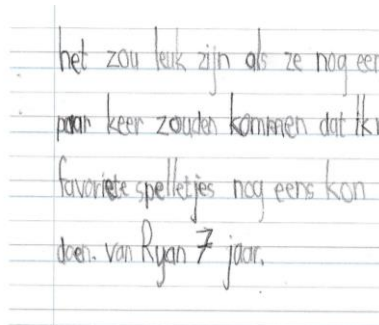 het zou leuk zijn als ze nog een
paar keer zouden kommen dat ik
favoriete spelletjes nog eens kon
doen. van Ryan 7 jaar.